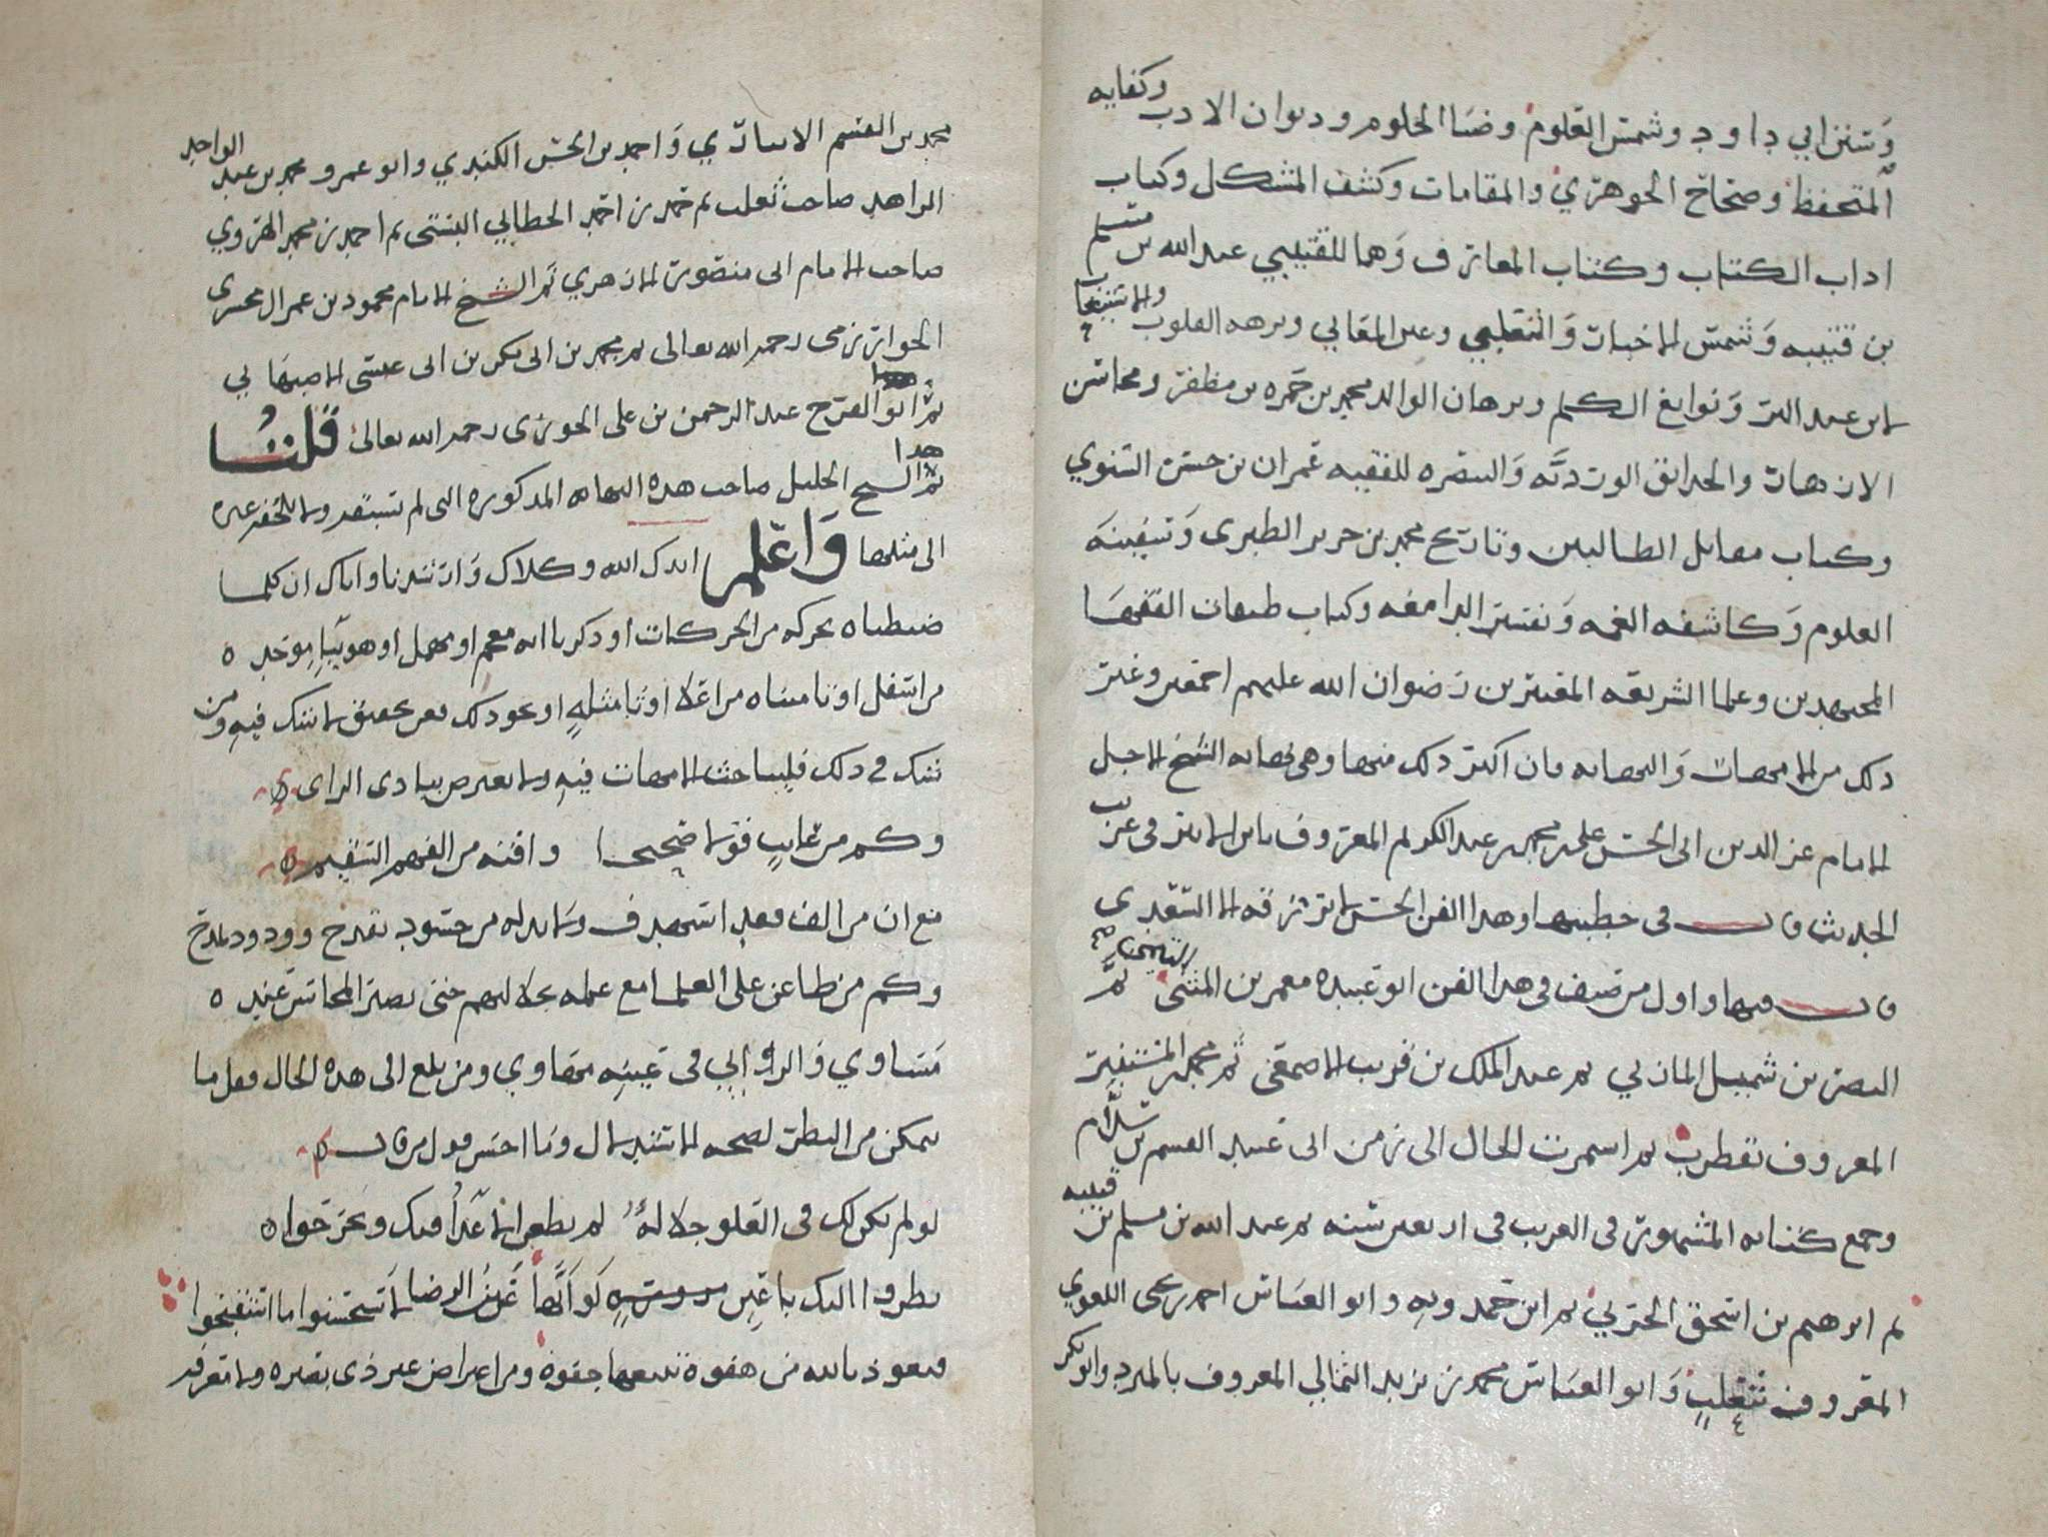 وسنن ابي داود وشمس العلوم وضيا الحلوم وديوان الادب وكفايه
المتحفظ وصحاح الجوهري والمقامات وكشف المشكل وكتاب
اداب الكتاب وكتاب المعارف وهما للقتيبي عبدالله بن مسلم
بن قتيبه وشمس الاخبار والثعلبي وغير المعاني ونزهه القلوب والاستيعاب
لابن عبد البر ونوابغ الكلم وبرهان الوالد محمد بن حمزه بن مظفر ومحاسن
الازهار والحدائق الوردية والتبصره للفقيه عمران بن حسن الشتوي
وكتاب مقاتل الطالبين وتاريخ محمد بن جرير الطبري وسفينه
العلوم وكاشفه الغمه وتفسير الدامغه وكتاب طبقات الفقها
المجتهدين وعلما الشريعه المفسرين رضوان الله عليهم اجمعين وغير
ذلك من الامهات والنهايه فان اكثر ذلك منها وهي نهايه الشيخ الاجل
الامام عز الدين ابي الحسن علي بن محمد بن عبد الكريم المعروف بابن الاثير في غريب
الحديث قال في خطبتها وهذا الفن الحسن
قال فيها واول من صنف في هذا الفن ابو عبيده معمر بن المثنى التيمي ثم
النضر بن شميل المازني ثم عبد الملك بن قريب الاصمعي ثم محمد بن المستنير
المعروف بقطرب ثم استمرت الحال الى زمن ابي عبيد القسم بن سلام
وجمع كتابه المشهور في الغريب في اربعين سنه ثم عبد الله بن مسلم بن قتيبه
ثم ابرهيم بن اسحق الحربي ثم ابن حمدويه وابو العباس احمد بن يحيى اللغوي
المعروف بثعلب وابو العباس محمد بن يزيد الثمالي المعروف بالمبرد وابو بكر
محمد بن القسم الانباري واحمد بن الحسن الكندي وابو عمرو محمد بن عبد الواحد
الزاهد صاحب ثعلب ثم حمد بن احمد الخطابي البستي ثم احمد بن محمد الهروي
صاحب الامام ابي منصور الازهري ثم الشيخ الامام محمود بن عمر الزمخشري
الخوارزمي رحمه الله تعالى ثم محمد بن ابي بكر بن ابي عيسى الاصبهاني
ثم ابو الفرج عبد الرحمن بن علي الجوزي رحمه الله تعالى قلنا
ثم هذا الشيخ الجليل صاحب هذه النهايه المذكوره التي لم تستقر ولا تفتقر غيره
الى مثلها واعلم ايدك الله وكلاك وارشدنا واياك ان كلما
ضبطناه بحركه من الحركات او ذكرنا انه معجم او مهمل او هو بيا موحده
من اسفل او تا مثناه من اعلا او ثا مثلثه او نحو ذلك فعن تحقيق لا شك فيه ومن
شك في ذلك فليباحث الامهات فيه ولا يعترض ببادى الراى
وكم من عايب قولا صحيحا وافته من الفهم السقيم
مع ان من الف فقد استهدف ولا بد له من حسود يقدح وودود يمدح
وكم من طاعن على العلما مع علمه بجلالتهم حتى تصير المحاسن عنده
مساوي فالراي في عينيه مخاوي ومن بلغ الى هذه الحال فقل ما
يمكن من النظر لصحه الاستدلال وما احسن قول من قال
لو لم تكن لك في القلوب جلاله لم يطعن الاعدا فيك ويجرحوا
نظروا اليك باعين لو انها عين الرضا لاستحسنوا ما استقبحوا
فنعوذ بالله من هفوة تتبعها جفوة ومن اعتراض غير ذي بصيره ولا معرفه